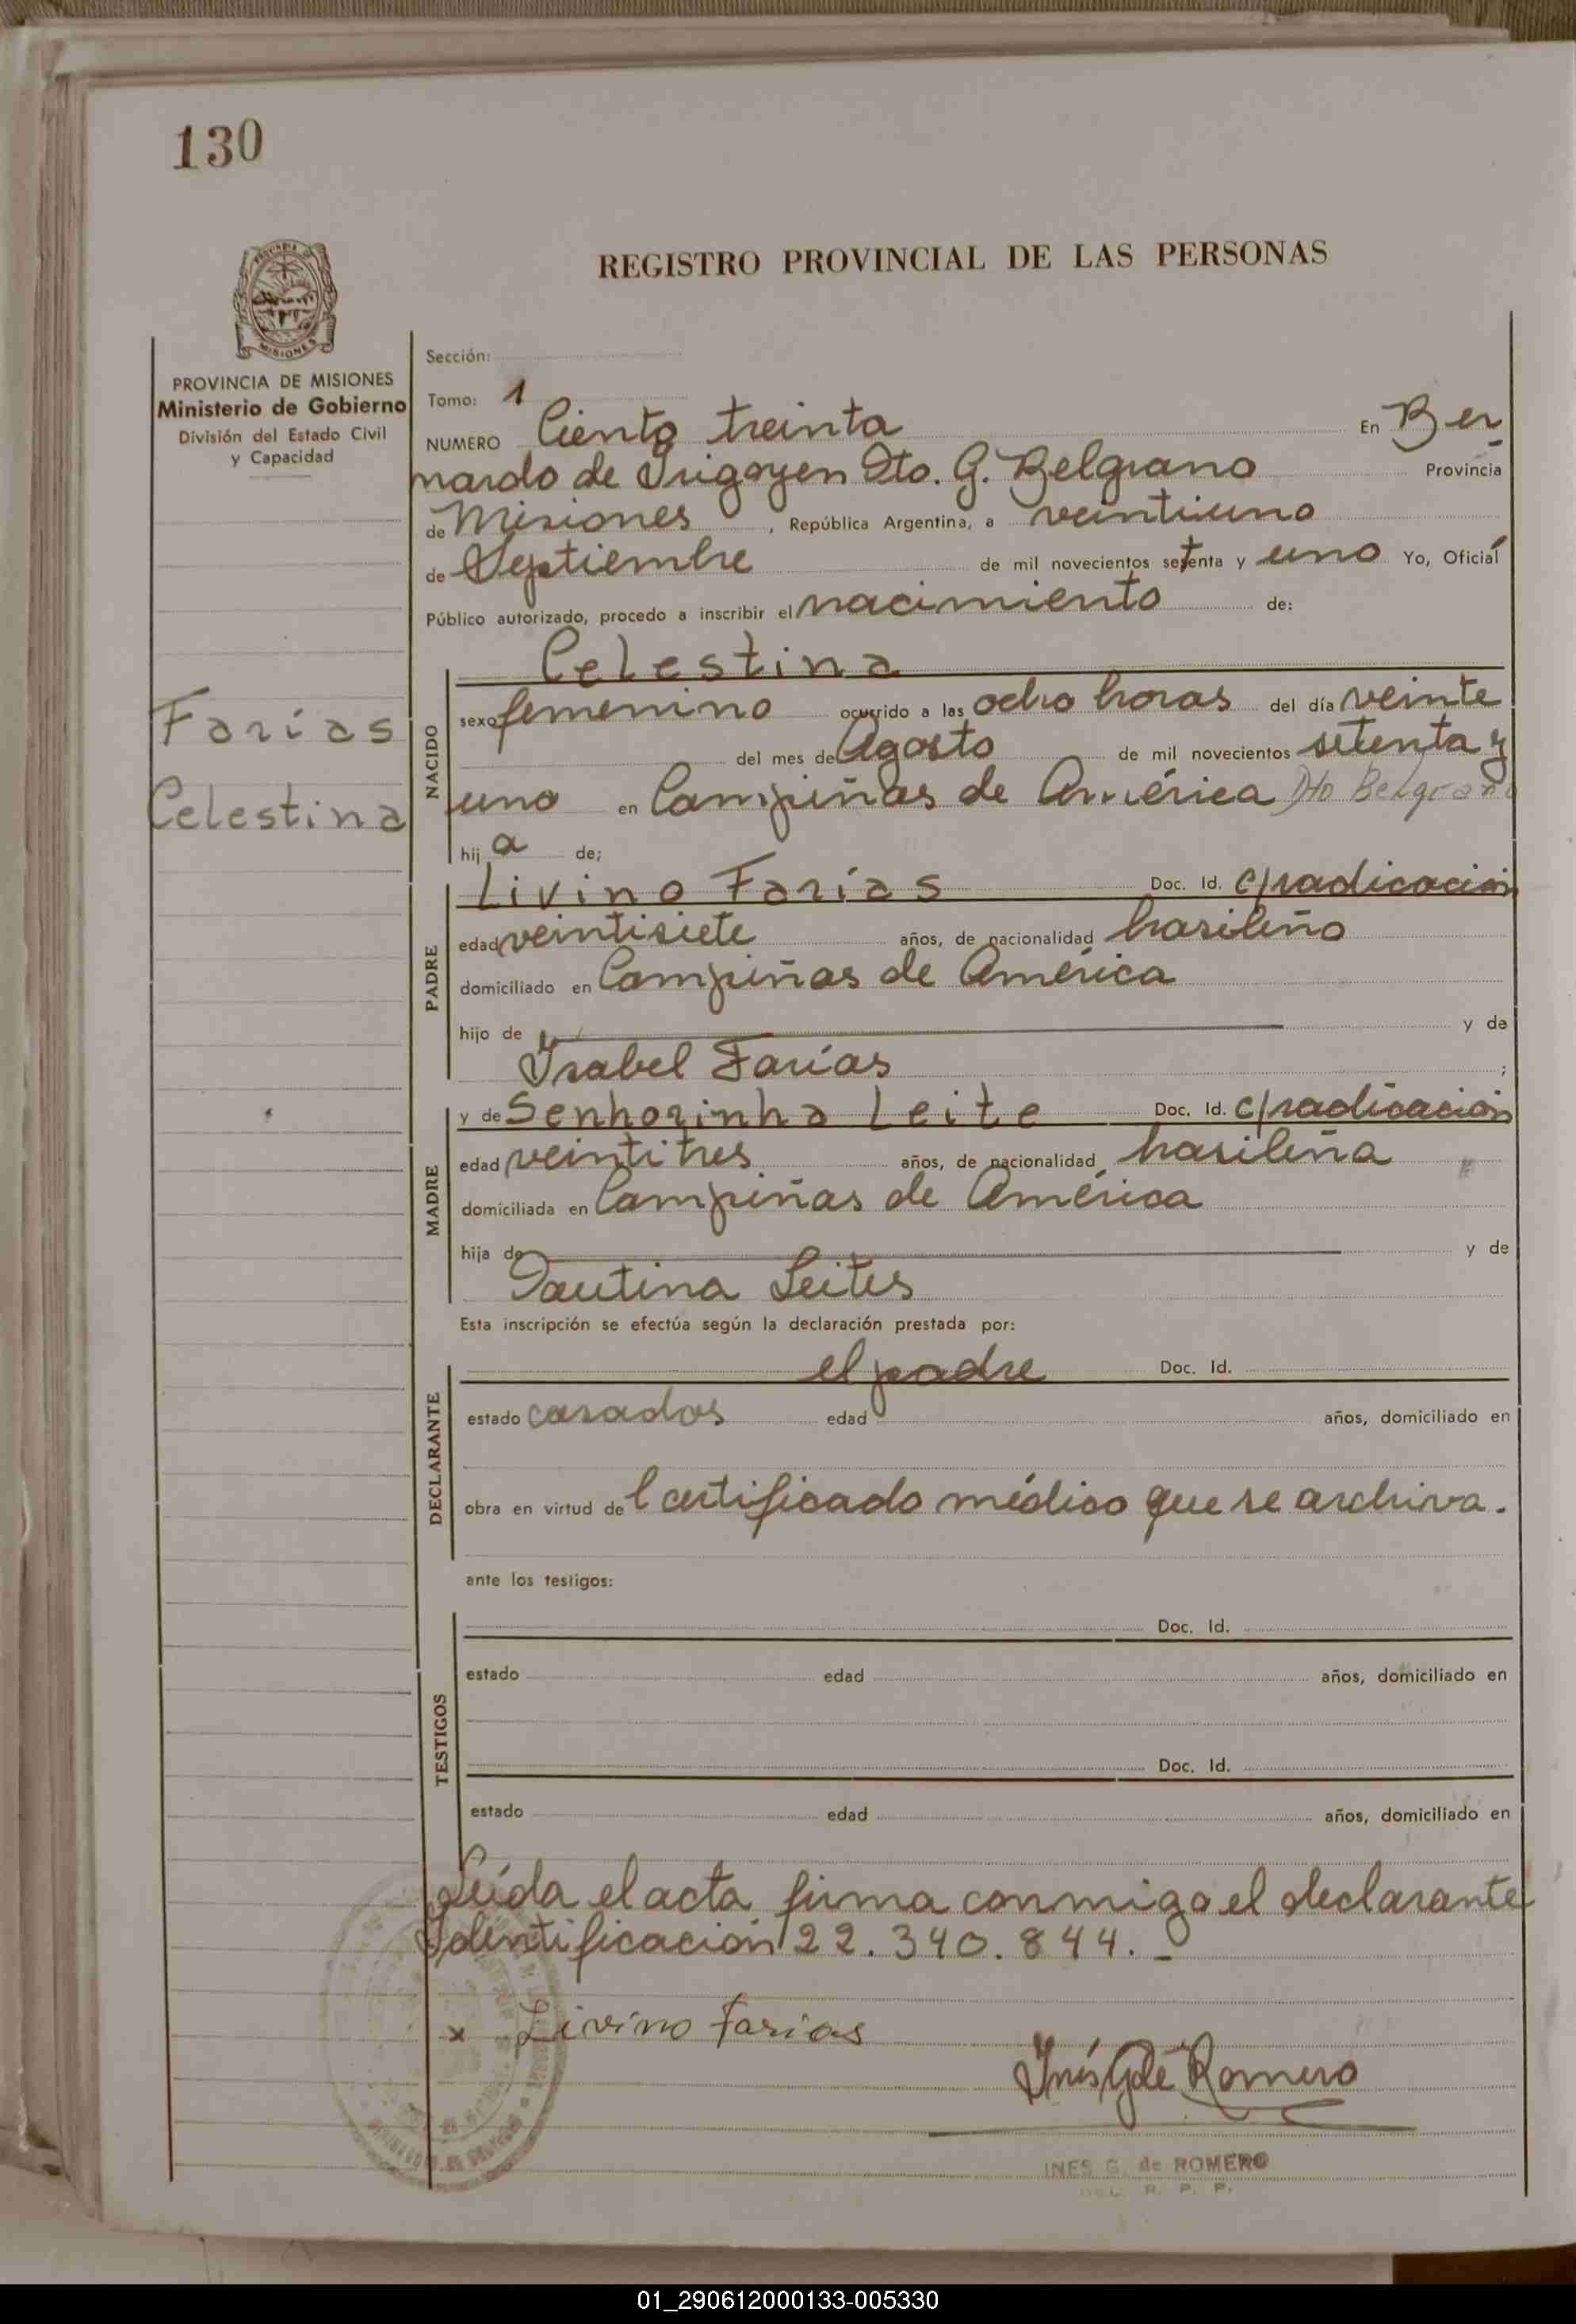 130
REGISTRO PROVINCIAL DE LAS PERSONAS
PROVINCIA
MISIONES
PROVINCIA DE MISIONES
Ministerio de Gobierno
División del Estado Civil
y Capacidad
Farías
Celestina
Sección:
Tomo: 1
NUMERO Ciento treinta En Ber
nardo de Irigoyen Dto. G. Belgrano Provincia
de Misiones, República Argentina, a veintiuno
de Septiembre de mil novecientos setenta y uno Yo, Oficial
Público autorizado, procedo a inscribir el nacimiento de:
NACIDO
Celestina
sexo femenino ocurrido a las ocho horas del día veinte
del mes de Agosto de mil novecientos setenta y
uno en Campiñas de América Dto Belgrano
hij a de;
PADRE
Livino Farías Doc. Id. c/radicación
edad veintisiete años, de nacionalidad brasileño
domiciliado en Campiñas de América
hijo de y de
Isabel Farías ;
MADRE
y de Senhorinha Leite Doc. Id. c/radicación
edad veintitres años, de nacionalidad brasileña
domiciliada en Campiñas de América
hija de y de
Leites
Esta inscripción se efectúa según la declaración prestada por:
DECLARANTE
el padre Doc. Id.
estado casados edad años, domiciliado en
obra en virtud del certificado médico que se archiva.
ante los testigos:
TESTIGOS
Doc. Id.
estado edad años, domiciliado en
Doc. Id.
estado edad años, domiciliado en
Leída el acta firma conmigo el declarante
Identificación 22.340.844.-
x Livino Farias
Inés G de Romero
INES G. de ROMERO
DEL. R. P. P.
01_290612000133-005330